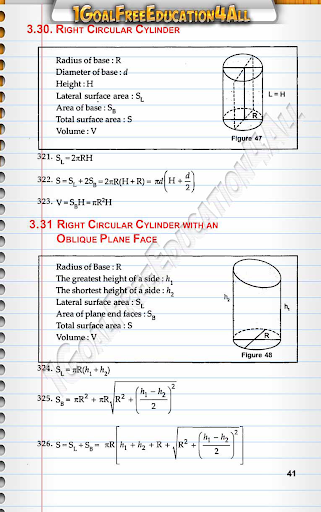 1GOALFREEEDUCATION4ALL
3.30. RIGHT CIRCULAR CYLINDER
Radius of base : R
Diameter of base : d
Height : H
Lateral surface area : S_L
Area of base : S_B
Total surface area : S
Volume : V
L = H
R
Figure 47
321. S_L = 2πRH
322. S = S_L + 2S_B = 2πR(H + R) = πd(H + d/2)
323. V = S_B H = πR²H
3.31 RIGHT CIRCULAR CYLINDER WITH AN
OBLIQUE PLANE FACE
Radius of Base : R
The greatest height of a side : h₁
The shortest height of a side : h₂
Lateral surface area : S_L
Area of plane end faces : S_B
Total surface area : S
Volume : V
h₂
h₁
R
Figure 48
324. S_L = πR(h₁ + h₂)
325. S_B = πR² + πR√(R² + ((h₁ − h₂)/2)²)
326. S = S_L + S_B = πR[h₁ + h₂ + R + √(R² + ((h₁ − h₂)/2)²)]
41
1GOALFREEEDUCATION4ALL